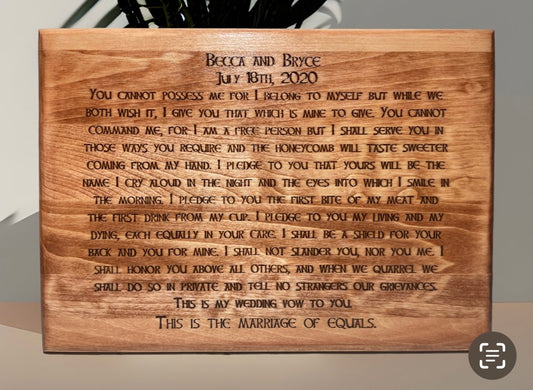 Becca and Bryce
July 18th, 2020
You cannot possess me for I belong to myself but while we
both wish it, I give you that which is mine to give. You cannot
command me, for I am a free person but I shall serve you in
those ways you require and the honeycomb will taste sweeter
coming from my hand. I pledge to you that yours will be the
name I cry aloud in the night and the eyes into which I smile in
the morning. I pledge to you the first bite of my meat and
the first drink from my cup. I pledge to you my living and my
dying, each equally in your care. I shall be a shield for your
back and you for mine. I shall not slander you, nor you me. I
shall honor you above all others, and when we quarrel we
shall do so in private and tell no strangers our grievances.
This is my wedding vow to you.
This is the marriage of equals.